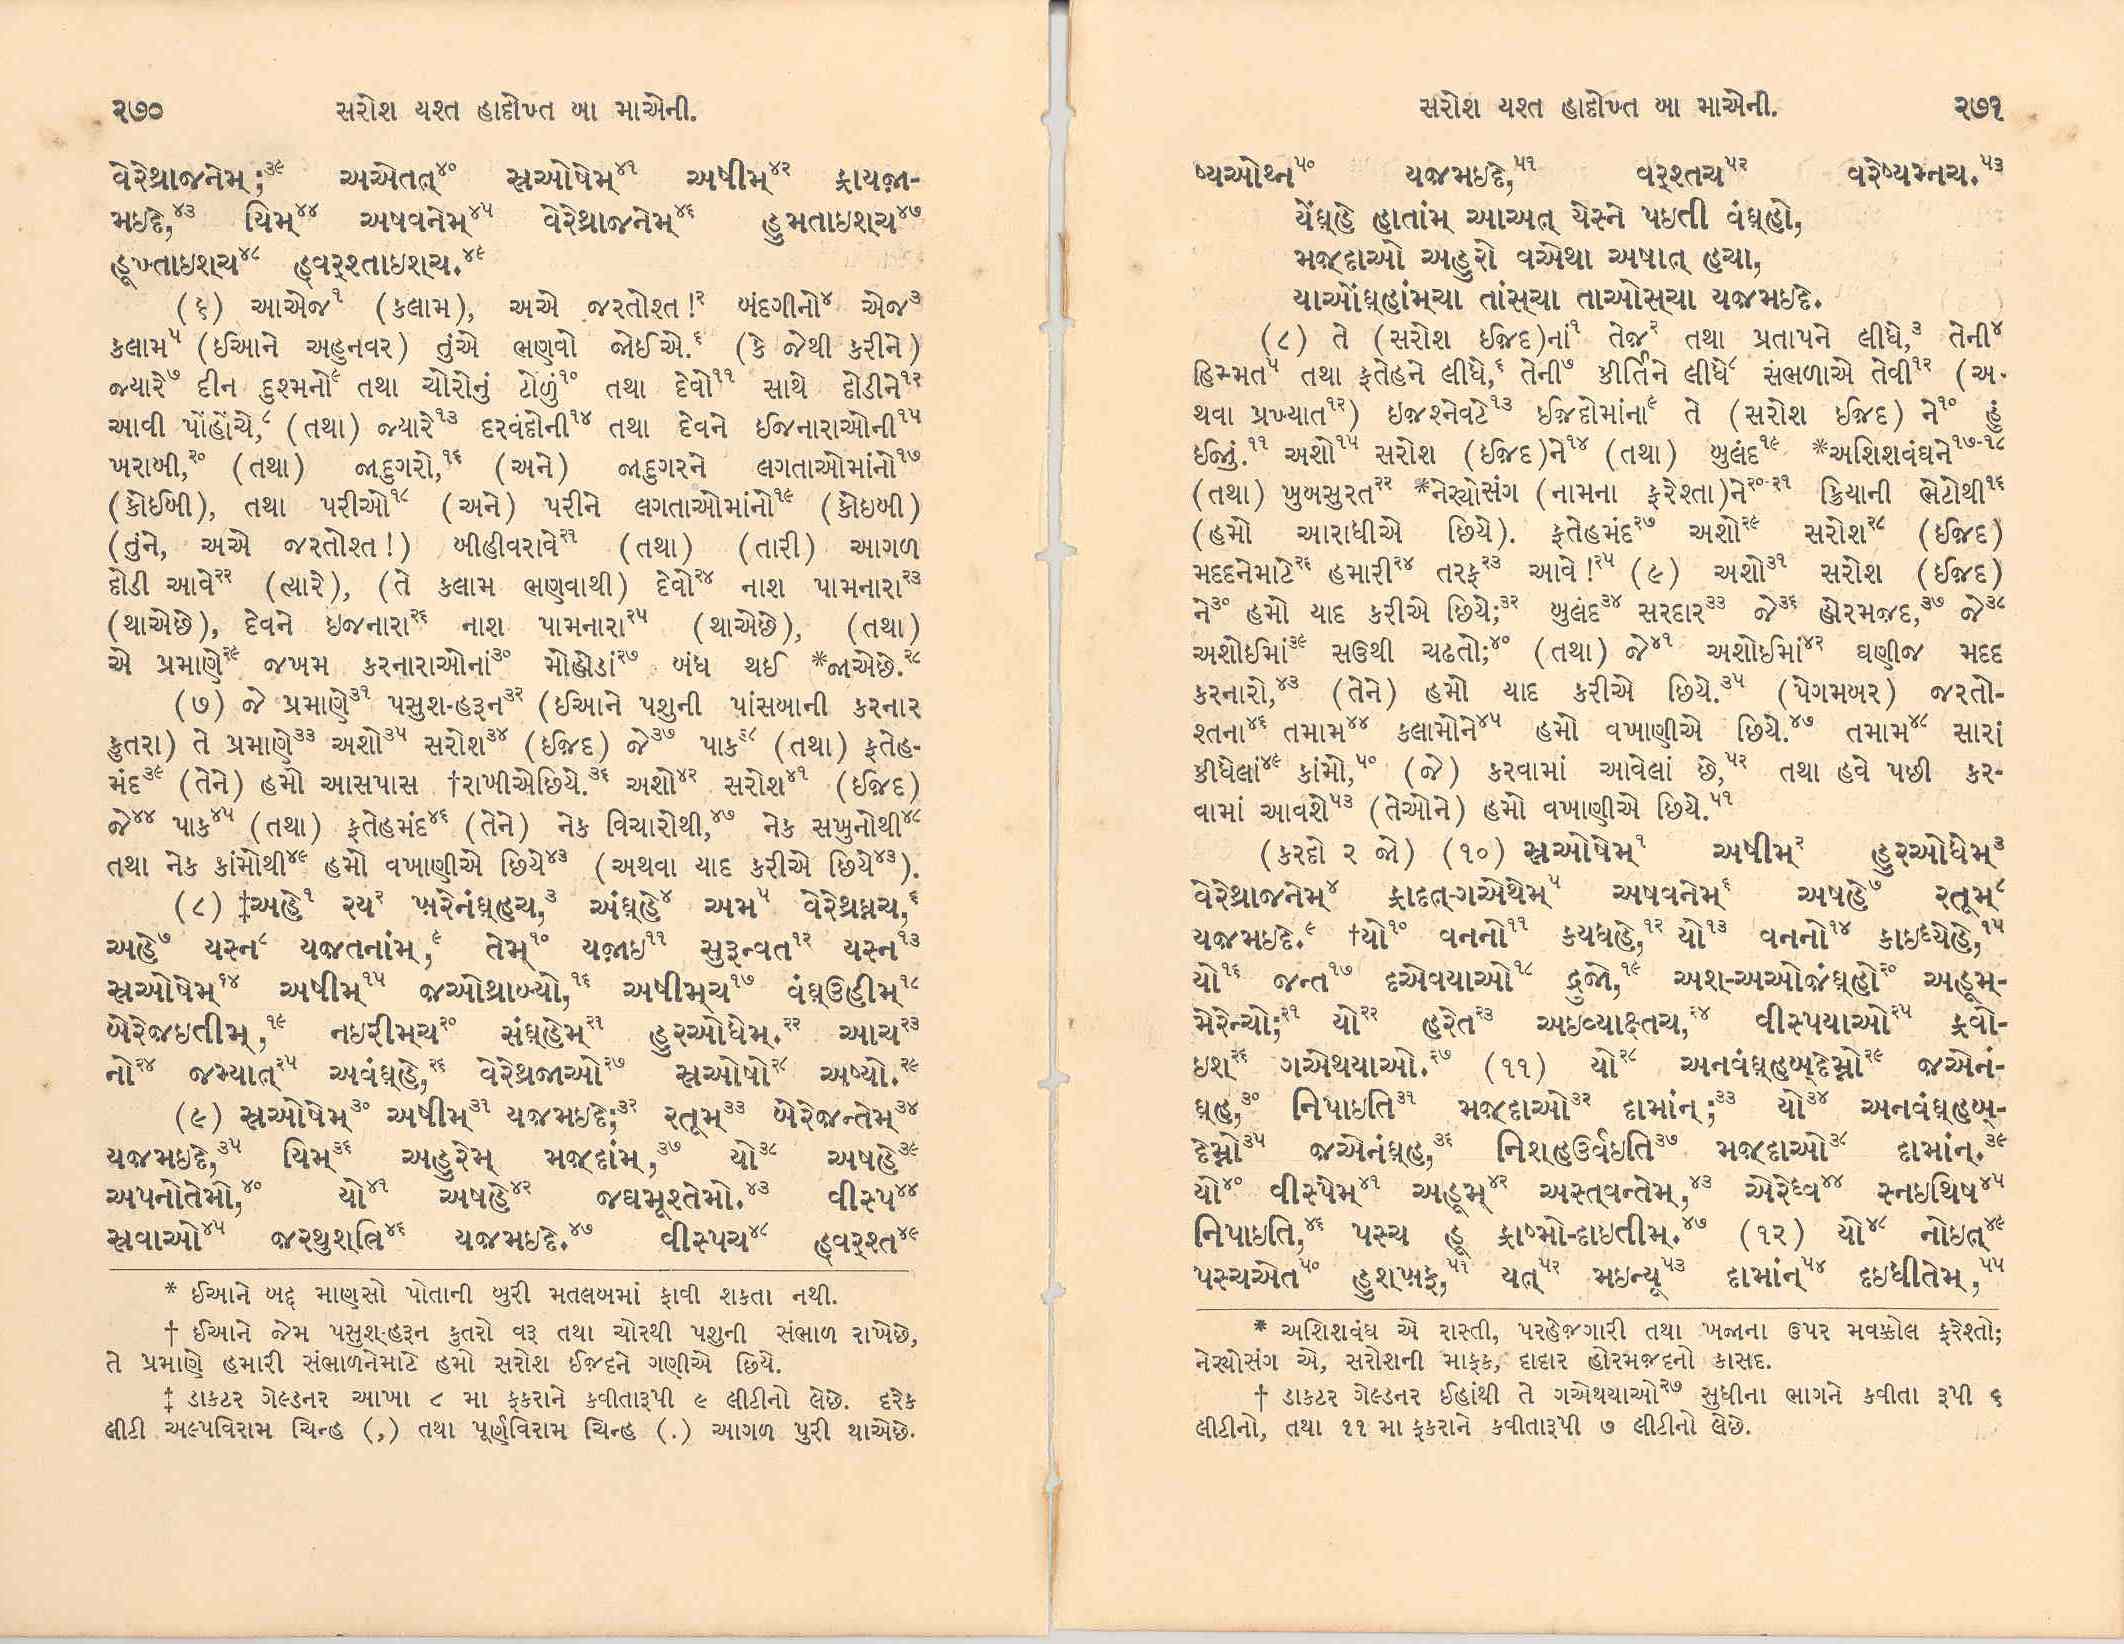 ૨૭૦ સરોશ યશ્ત હાદોખ્ત બા માએની.
વેરેથ્રાજનેમ્;૩૯ અએતત્૪૦ સ્રઓષેમ્૪૧ અષીમ્૪૨ ફ્રાયજ઼ા-
મઇદે,૪૩ યિમ્૪૪ અષવનેમ્૪૫ વેરેથ્રાજનેમ્૪૬ હુમતાઇશ્ચ૪૭
હૂખ્તાઇશ્ચ૪૮ હ્વર્શ્તાઇશ્ચ.૪૯
(૬) આએજ૧ (કલામ), અએ જરતોશ્ત!૨ બંદગીનો૪ એજ૩
કલામ૫ (ઈઆને અહુનવર) તુંએ ભણવો જોઈએ.૬ (કે જેથી કરીને)
જ્યારે૭ દીન દુશ્મનો૯ તથા ચોરોનું ટોળું૧૦ તથા દેવો૧૧ સાથે દોડીને૧૨
આવી પોંહોંચે,૮ (તથા) જ્યારે૧૩ દરવંદોની૧૪ તથા દેવને ઈજનારાઓની૧૫
ખરાબી,૨૦ (તથા) જાદુગરો,૧૬ (અને) જાદુગરને લગતાઓમાંનો૧૭
(કોઈબી), તથા પરીઓ૧૮ (અને) પરીને લગતાઓમાંનો૧૯ (કોઇબી)
(તુંને, અએ જરતોશ્ત!) બીહીવરાવે૨૧ (તથા) (તારી) આગળ
દોડી આવે૨૨ (ત્યારે), (તે કલામ ભણવાથી) દેવો૨૪ નાશ પામનારા૨૩
(થાએછે), દેવને ઇજનારા૨૬ નાશ પામનારા૨૫ (થાએછે), (તથા)
એ પ્રમાણે૨૯ જખમ કરનારાઓનાં૩૦ મોહોડાં૨૭ બંધ થઈ *જાએછે.૨૮
(૭) જે પ્રમાણે૩૧ પસુશ-હરૂન૩૨ (ઈઆને પશુની પાંસબાની કરનાર
કુતરા) તે પ્રમાણે૩૩ અશો૩૫ સરોશ૩૪ (ઈજ઼દ) જે૩૭ પાક૩૮ (તથા) ફતેહ-
મંદ૩૯ (તેને) હમો આસપાસ †રાખીએછિયે.૩૬ અશો૪૨ સરોશ૪૧ (ઈજ઼દ)
જે૪૪ પાક૪૫ (તથા) ફતેહમંદ૪૬ (તેને) નેક વિચારોથી,૪૭ નેક સખુનોથી૪૮
તથા નેક કાંમોથી૪૯ હમો વખાણીએ છિયે૪૩ (અથવા યાદ કરીએ છિયે૪૩).
(૮) ‡અહે૧ રય૨ ખ઼રેનંઘ્હચ,૩ અંઘ્હે૪ અમ૫ વેરેથ્રઘ્નચ,૬
અહે૭ યસ્ન૮ યજ઼તનાંમ્,૯ તેમ્૧૦ યજ઼ાઇ૧૧ સુરૂન્વત૧૨ યસ્ન૧૩
સ્રઓષેમ્૧૪ અષીમ્૧૫ જ઼ઓથ્રાબ્યો,૧૬ અષીમ્ચ૧૭ વંઘ્ઉહીમ્૧૮
બેરેજ઼ઇતીમ્,૧૯ નઇરીમ્ચ૨૦ સંઘ્હેમ્૨૧ હુરઓધેમ્.૨૨ આચ૨૩
નો૨૪ જમ્યાત્૨૫ અવંઘ્હે,૨૬ વેરેથ્રજાઓ૨૭ સ્રઓષો૨૮ અષ્યો.૨૯
(૯) સ્રઓષેમ્૩૦ અષીમ્૩૧ યજ઼મઇદે;૩૨ રતૂમ્૩૩ બેરેજ઼ન્તેમ્૩૪
યજ઼મઇદે,૩૫ યિમ્૩૬ અહુરેમ્ મજ઼્દાંમ્,૩૭ યો૩૮ અષહે૩૯
અપનોતેમો,૪૦ યો૪૧ અષહે૪૨ જઘ્મૂશ્તેમો.૪૩ વીસ્પ૪૪
સ્રવાઓ૪૫ જ઼રથુશ્ત્રિ૪૬ યજ઼મઇદે.૪૭ વીસ્પચ૪૮ હ્વર્શ્ત૪૯
* ઈઆને બદ્દ માણસો પોતાની બુરી મતલબમાં ફાવી શકતા નથી.
† ઈઆને જેમ પસુશ-હરૂન કુતરો વરૂ તથા ચોરથી પશુની સંભાળ રાખેછે,
તે પ્રમાણે હમારી સંભાળનેમાટે હમો સરોશ ઈજ઼દને ગણીએ છિયે.
‡ ડાકટર ગેલ્ડનર આખા ૮ મા ફકરાને કવીતારૂપી ૯ લીટીનો લેછે. દરેક
લીટી અલ્પવિરામ ચિન્હ (,) તથા પૂર્ણવિરામ ચિન્હ (.) આગળ પુરી થાએછે.
સરોશ યશ્ત હાદોખ્ત બા માએની. ૨૭૧
ષ્યઓથ્ન૫૦ યજ઼મઇદે,૫૧ વર્શ્તચ૫૨ વરેષ્યમ્નચ.૫૩
યેંઘ્હે હાતાંમ્ આઅત્ યેસ્ને પઇતી વંઘ્હો,
મજ઼્દાઓ અહુરો વએથા અષાત્ હચા,
યાઓંઘ્હાંમ્ચા તાંસ્ચા તાઓસ્ચા યજ઼મઇદે.
(૮) તે (સરોશ ઈજ઼દ)નાં૧ તેજ૨ તથા પ્રતાપને લીધે,૩ તેની૪
હિમ્મત૫ તથા ફતેહને લીધે,૬ તેની૭ કીર્તિને લીધે૮ સંભળાએ તેવી૧૨ (અ-
થવા પ્રખ્યાત૧૨) ઇજ઼શ્નેવટે૧૩ ઈજ઼દોમાંના૯ તે (સરોશ ઈજ઼દ) ને૧૦ હું
ઈજું.૧૧ અશો૧૫ સરોશ (ઈજ઼દ)ને૧૪ (તથા) બુલંદ૧૯ *અશિશવંઘને૧૭-૧૮
(તથા) ખુબસુરત૨૨ *નેર્યોસંગ (નામના ફરેશ્તા)ને૨૦-૨૧ ક્રિયાની ભેટોથી૧૬
(હમો આરાધીએ છિયે). ફતેહમંદ૨૭ અશો૨૯ સરોશ૨૮ (ઈજ઼દ)
મદદનેમાટે૨૬ હમારી૨૪ તરફ૨૩ આવે!૨૫ (૯) અશો૩૧ સરોશ (ઈજ઼દ)
ને૩૦ હમો યાદ કરીએ છિયે;૩૨ બુલંદ૩૪ સરદાર૩૩ જે૩૬ હોરમજ઼દ,૩૭ જે૩૮
અશોઈમાં૩૯ સઉથી ચઢતો;૪૦ (તથા) જે૪૧ અશોઈમાં૪૨ ઘણીજ મદદ
કરનારો,૪૩ (તેને) હમો યાદ કરીએ છિયે.૩૫ (પેગમબર) જરતો-
શ્તના૪૬ તમામ૪૪ કલામોને૪૫ હમો વખાણીએ છિયે.૪૭ તમામ૪૮ સારાં
કીધેલાં૪૯ કાંમો,૫૦ (જે) કરવામાં આવેલાં છે,૫૨ તથા હવે પછી કર-
વામાં આવશે૫૩ (તેઓને) હમો વખાણીએ છિયે.૫૧
(કરદો ૨ જો) (૧૦) સ્રઓષેમ્૧ અષીમ્૨ હુરઓધેમ્૩
વેરેથ્રાજનેમ્૪ ફ્રાદત્-ગએથેમ્૫ અષવનેમ્૬ અષહે૭ રતૂમ્૮
યજ઼મઇદે.૯ †યો૧૦ વનનો૧૧ કયધહે,૧૨ યો૧૩ વનનો૧૪ કાઇધ્યેહે,૧૫
યો૧૬ જન્ત૧૭ દએવયાઓ૧૮ દ્રુજો,૧૯ અશ-અઓજંઘ્હો૨૦ અહૂમ્-
મેરેન્ચો;૨૧ યો૨૨ હરેત૨૩ અઇવ્યાક્ષ્તચ,૨૪ વીસ્પયાઓ૨૫ ફ્રવો-
ઇશ૨૬ ગએથયાઓ.૨૭ (૧૧) યો૨૮ અનવંઘ્હબ્દેમ્નો૨૯ જ઼એનં-
ઘ્હ,૩૦ નિપાઇતિ૩૧ મજ઼્દાઓ૩૨ દામાંન્;૩૩ યો૩૪ અનવંઘ્હબ્-
દેમ્નો૩૫ જ઼એનંઘ્હ,૩૬ નિશ્હઉર્વઇતિ૩૭ મજ઼્દાઓ૩૮ દામાંન્.૩૯
યો૪૦ વીસ્પેમ્૪૧ અહૂમ્૪૨ અસ્ત્વન્તેમ્,૪૩ એરેધ્વ૪૪ સ્નઇથિષ૪૫
નિપાઇતિ,૪૬ પસ્ચ હૂ ફ્રાષ્મો-દાઇતીમ્.૪૭ (૧૨) યો૪૮ નોઇત્૪૯
પસ્ચએત૫૦ હુશખ઼ફ,૫૧ યત્૫૨ મઇન્યૂ૫૩ દામાંન્૫૪ દઇધીતેમ્,૫૫
* અશિશવંઘ એ રાસ્તી, પરહેજગારી તથા ખજાના ઉપર મવક્કોલ ફરેશ્તો;
નેર્યોસંગ એ, સરોશની માફક, દાદાર હોરમજ઼દનો કાસદ.
† ડાકટર ગેલ્ડનર ઈહાંથી તે ગએથયાઓ૨૭ સુધીના ભાગને કવીતા રૂપી ૬
લીટીનો, તથા ૧૧ મા ફકરાને કવીતારૂપી ૭ લીટીનો લેછે.